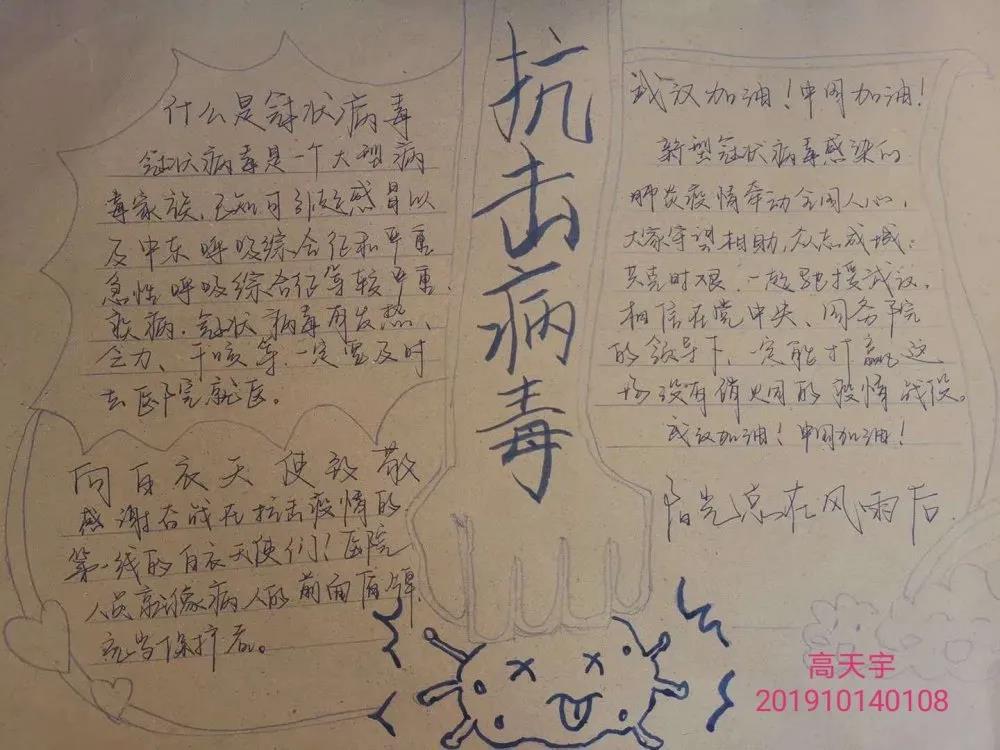 抗击病毒
什么是冠状病毒
冠状病毒是一个大型病
毒家族,已知可引起感冒以
及中东呼吸综合征和严重
急性呼吸综合征等较严重
疾病.冠状病毒有发热、
乏力、干咳等.一定要及时
去医院就医。
向白衣天使致敬
感谢奋战在抗击疫情的
第一线的白衣天使们!医院
人员就像病人的前面盾牌,
充当保护着。
武汉加油!中国加油!
新型冠状病毒感染的
肺炎疫情牵动全国人心,
大家守望相助,众志成城,
共克时艰.一起驰援武汉,
相信在党中央、国务院
的领导下,一定能打赢这
场没有硝烟的疫情战役。
武汉加油!中国加油!
阳光总在风雨后.
高天宇
201910140108